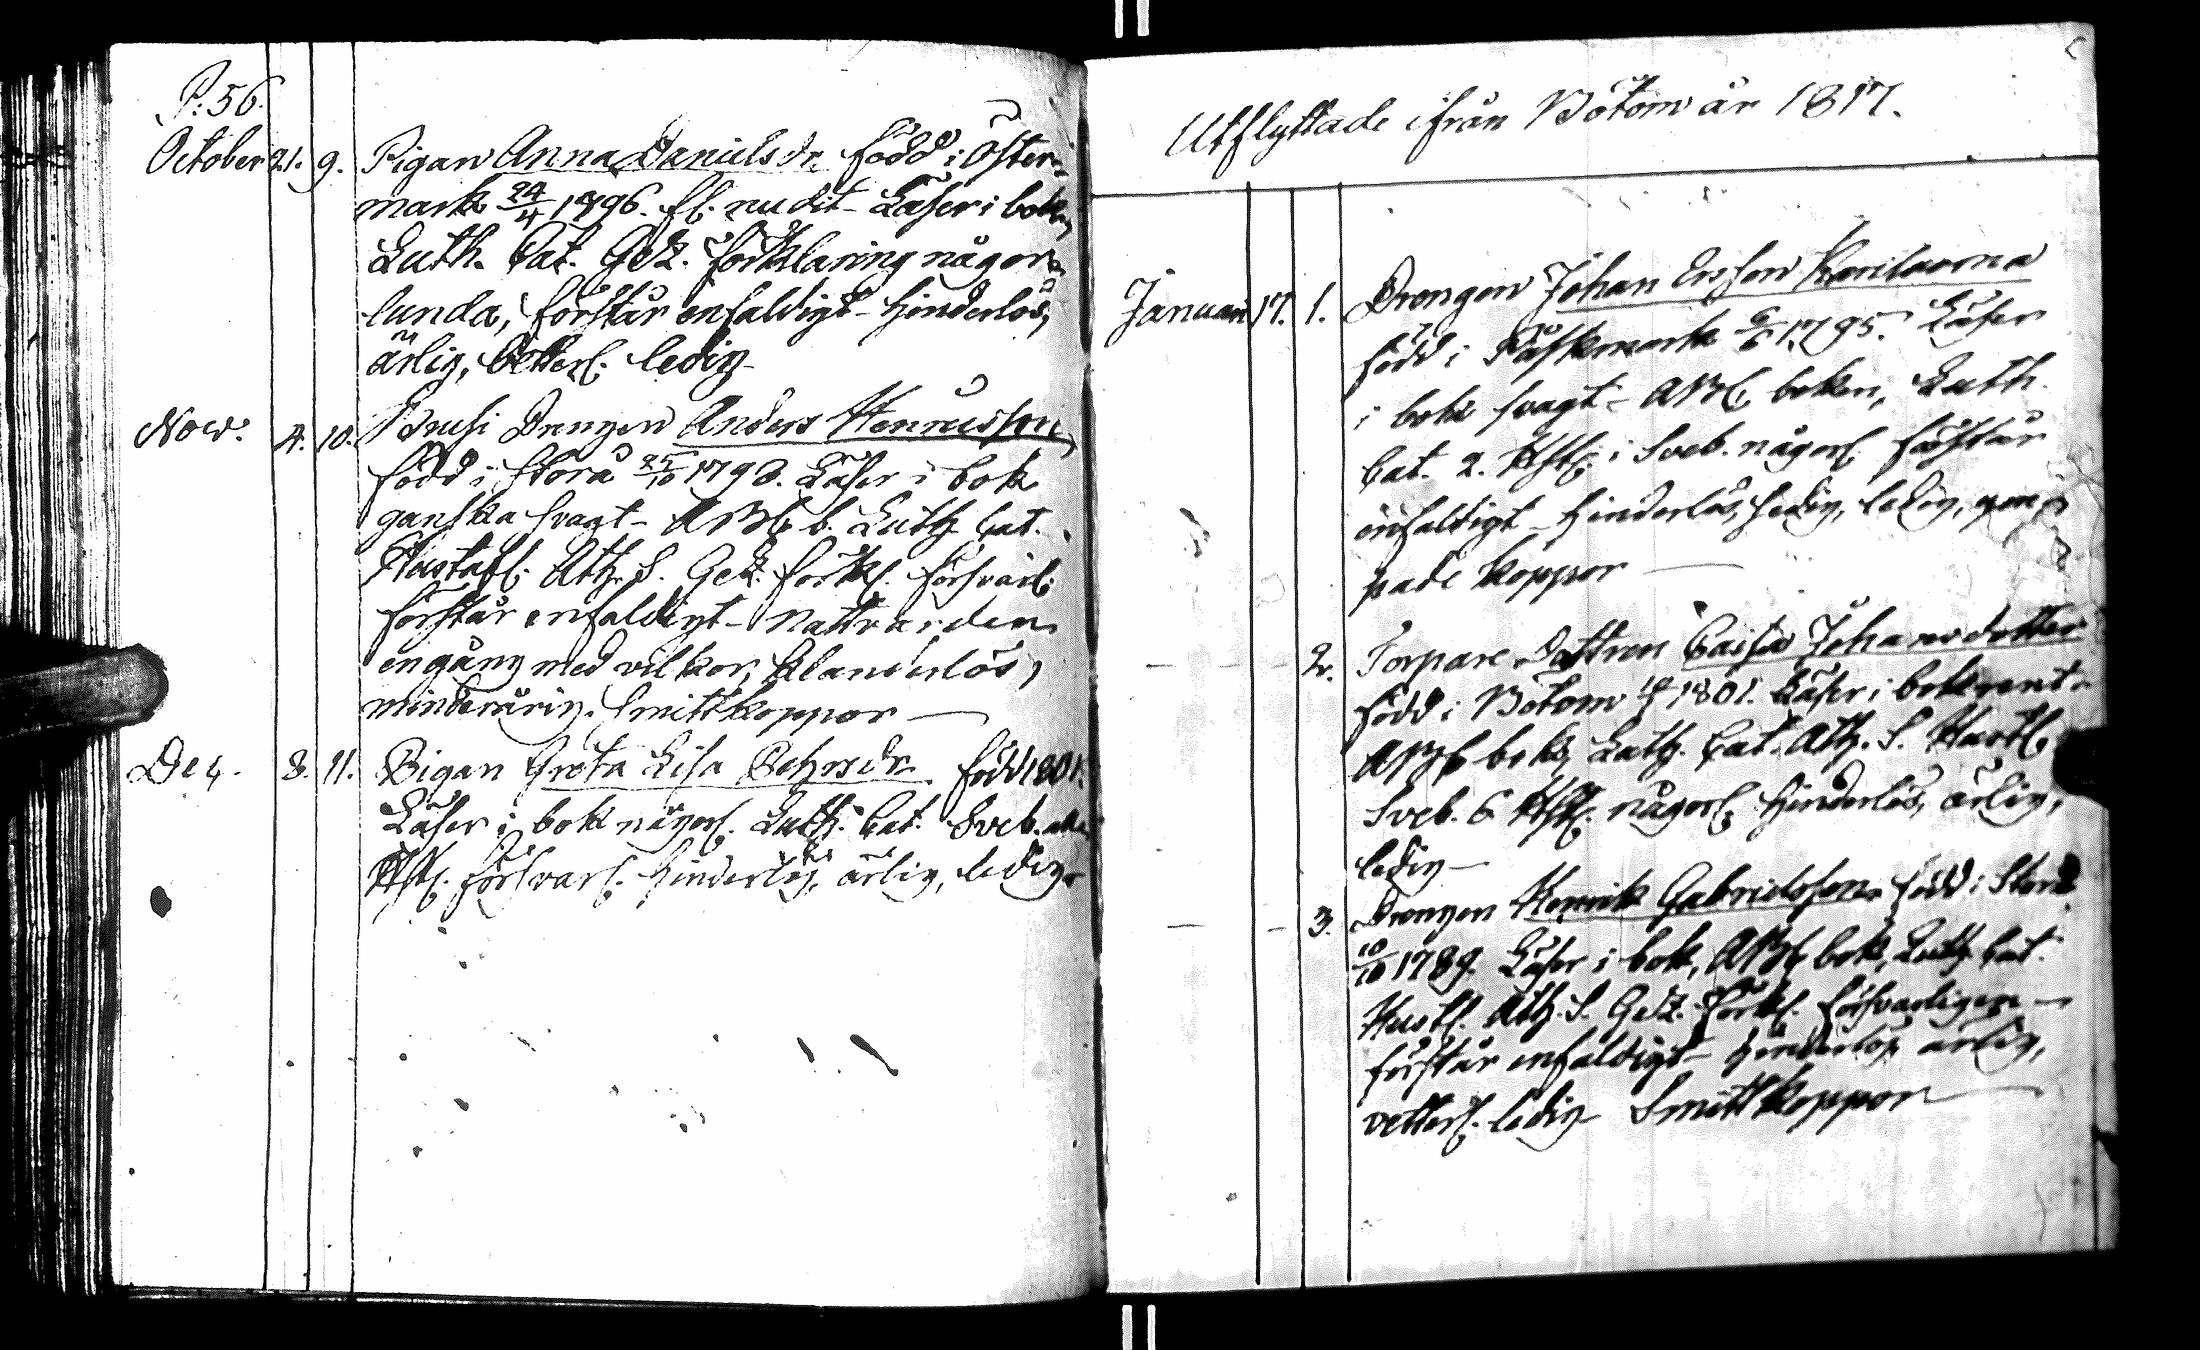 P: 56.
October 21. 9. Pigan Anna Danielsdr. född i Öster-
mark 24/4 1796. fl. nu dit - Läser i bok,
Luth. Cat. Gez. förklaring någor-
lunda, förstår enfaldigt - hinderlös,
ärlig, vetterl. ledig -
Nov: 4. 10. Drengen Anders Henricsson,
född i Storå 25/10 1798. Läser i bok
ganska svagt - ABC b. Luth Cat.
Hustafl. Ath. S. Gez. förkl. försvarl.
förstår enfaldigt - Nattvarden
engång med vilkor, klanderlös,
minderårig. Smittkoppor —
Dec. 8. 11. Pigan Greta Lisa Pehrsdr. född 1801.
Läser i bok någorl. Luth. Cat. Sveb.
Hstl. försvarl. hinderlös, ärlig, ledig.
Utflyttade ifrån Bötom år 1817.
Januari 17. 1. Drengen Johan Ersson
född i Påskmark 6/6 1795. Läser
i bok svagt - ABC boken, Luth.
Cat. 2. Hstl. i Sveb. någorl. förstår
enfaldigt - hinderlös, ledig,
pade koppor —
- - 2. Torpare Dottren Caisa Johansdotter
född i Bötom 1801. Läser i bok rent.
ABC bok, Luth. Cat. Ath. S. Hustl.
Sveb. 6 Hstl. någorl. hinderlös, ärlig,
ledig —
- - 3. Drengen Henrik Gabrielsson född i Storå
10/10 1789. Läser i bok, ABC bok, Luth. Cat.
Hustl. Ath. S. Gez. förkl. försvarligen —
förstår enfaldigt - hinderlös, ärlig,
vetterl. ledig - Smittkoppor —